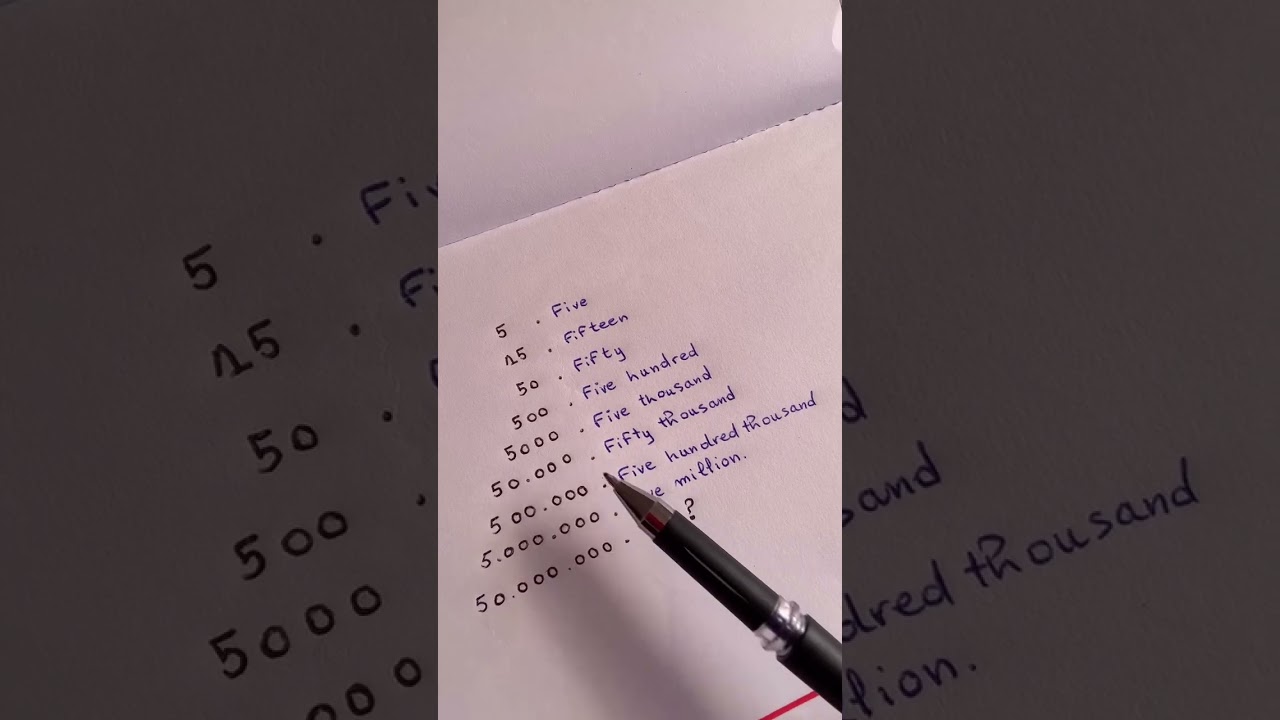 5 . Five
15 . Fifteen
50 . Fifty
500 . Five hundred
5000 . Five thousand
50.000 . Fifty thousand
500.000 . Five hundred thousand
5.000.000 . million.
50.000.000 . ?